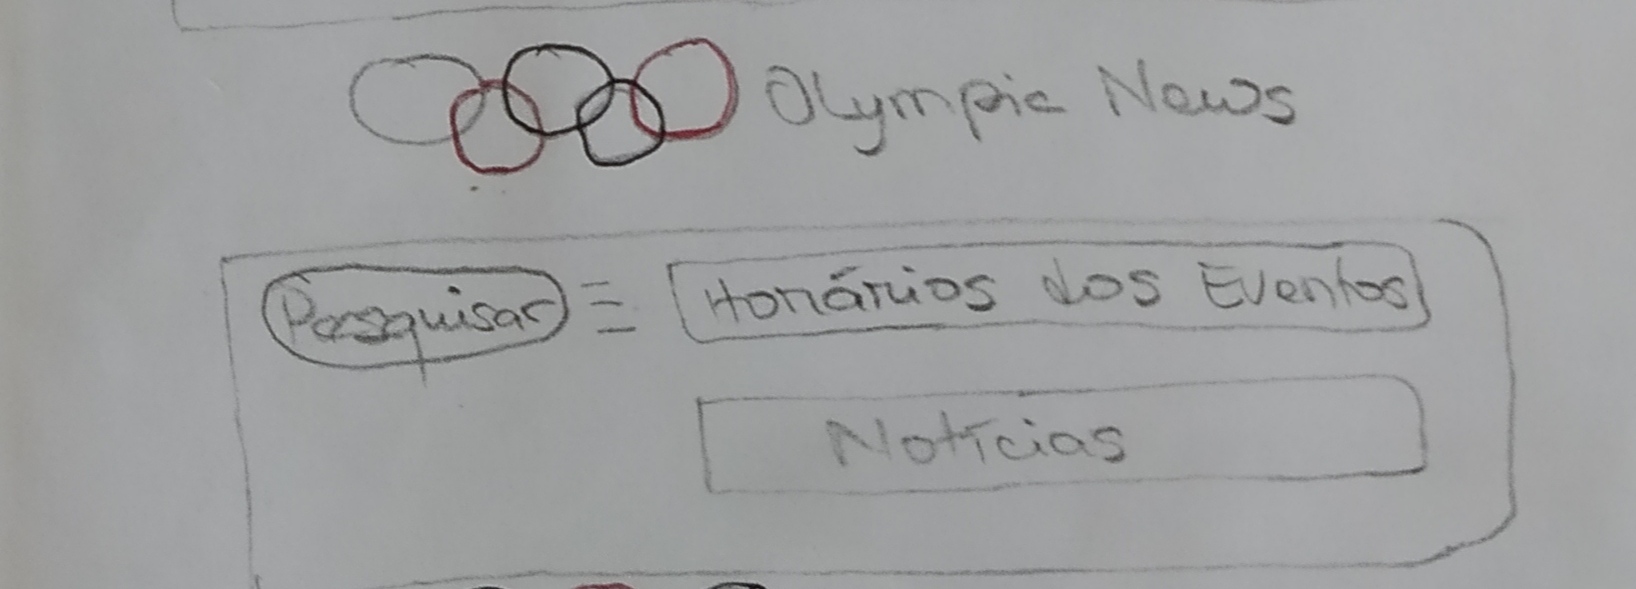 Olympic News
Pesquisar
Horários dos Eventos
Notícias